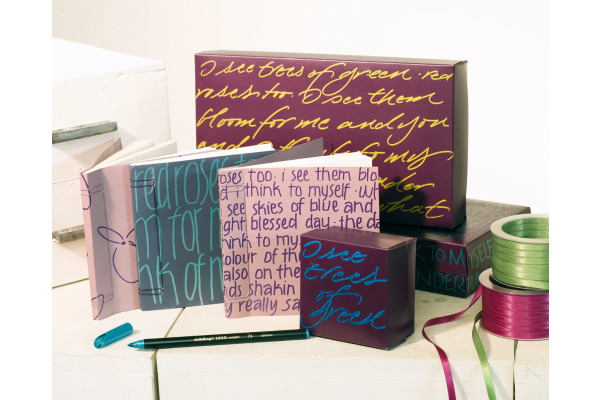 I see trees of green · red
roses too. I see them
bloom for me and you
to my
what
red rose
m for m
nk of m
roses too. i see them blo
i think to myself. wh
see skies of blue and
ght blessed day. the da
ink to my
colour of the
also on the
nds shakin
y really sa
I see
trees
of
green
K TO MYSELF
NDER
edding 1200